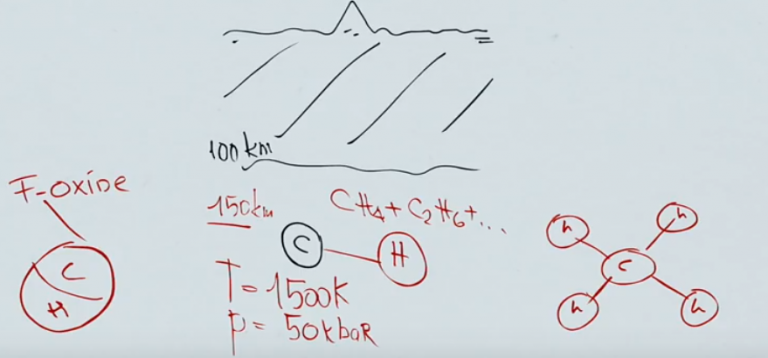 100 km
F-oxide
150km
CH4 + C2H6 + ...
C
H
C
H
T = 1500K
P = 50kbaR
h
h
C
h
h